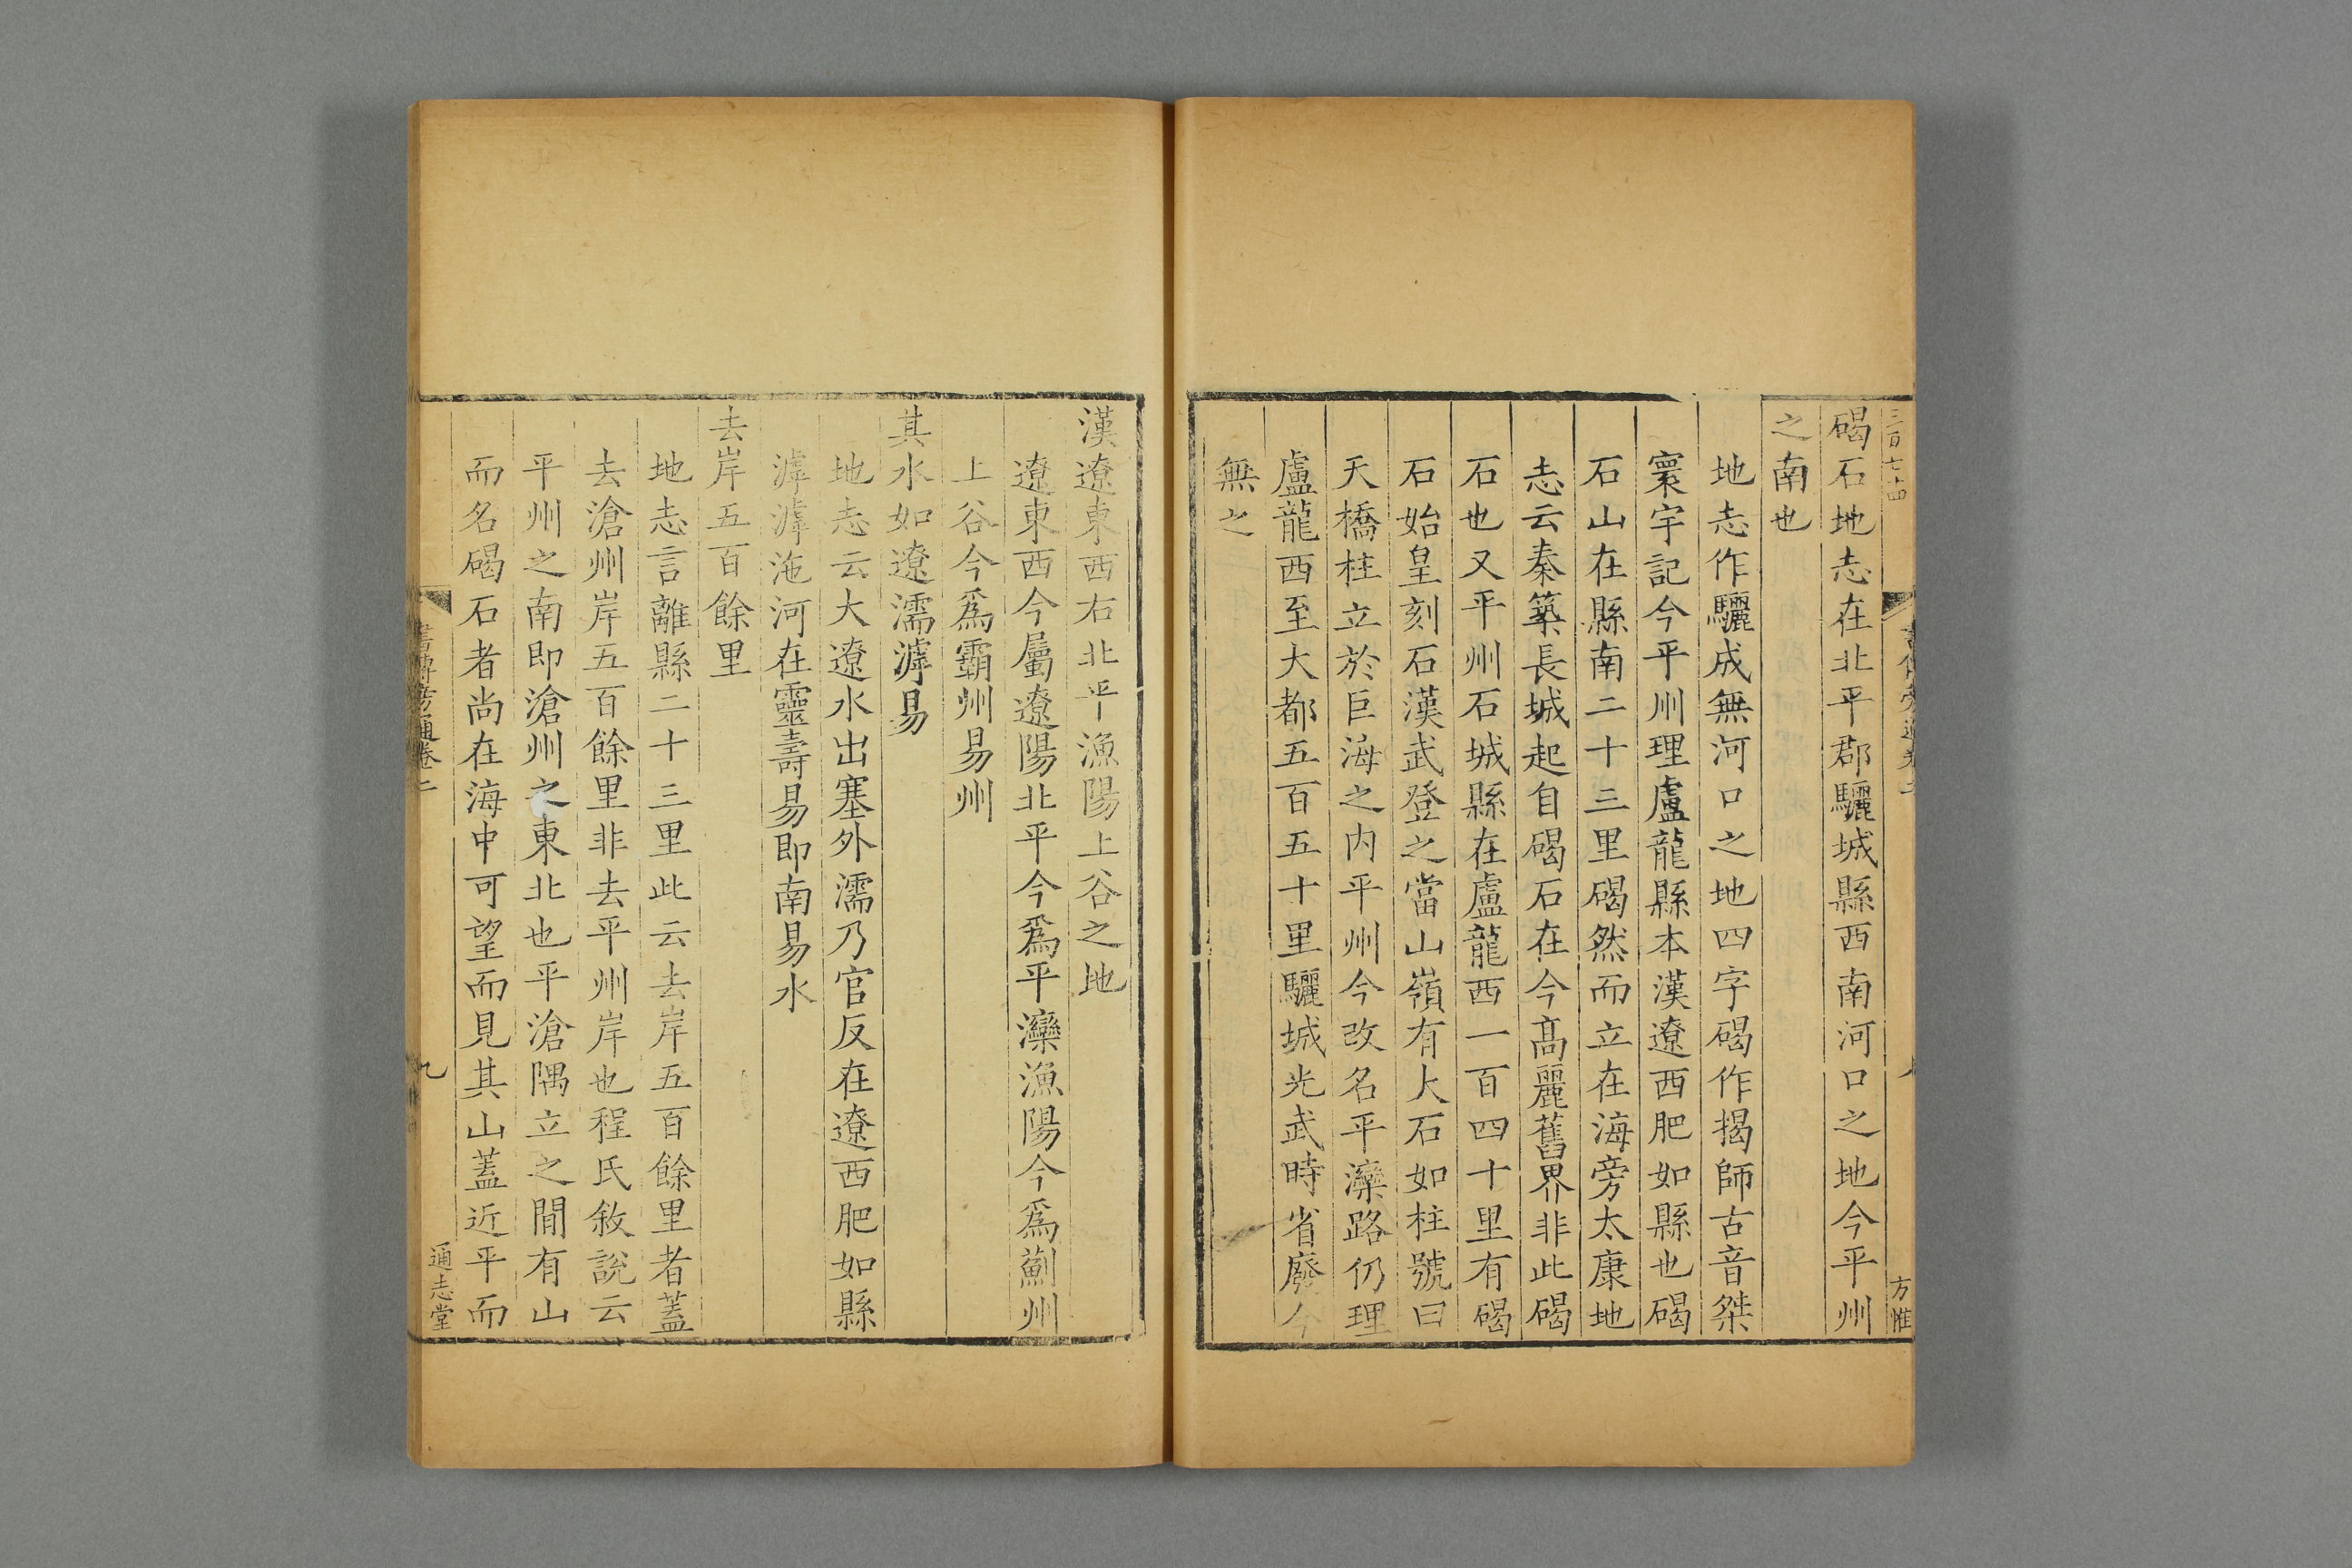 三百七十四
方惟
碣石地志在北平郡驪城縣西南河口之地今平州
之南也
地志作驪成無河口之地四字碣作揭師古音桀
寰宇記今平州理盧龍縣本漢遼西肥如縣也碣
石山在縣南二十三里碣然而立在海旁太康地
志云秦築長城起自碣石在今髙麗舊界非此碣
石也又平州石城縣在盧龍西一百四十里有碣
石始皇刻石漢武登之當山嶺有大石如柱號曰
天橋柱立於巨海之内平州今改名平灤路仍理
盧龍西至大都五百五十里驪城光武時省廢今
無之
漢遼東西右北平漁陽上谷之地
遼東西今屬遼陽北平今爲平灤漁陽今爲薊州
上谷今爲霸州易州
其水如遼濡滹易
地志云大遼水出塞外濡乃官反在遼西肥如縣
滹滹沲河在靈壽易即南易水
去岸五百餘里
地志言離縣二十三里此云去岸五百餘里者蓋
去滄州岸五百餘里非去平州岸也程氏敘說云
平州之南即滄州之東北也平滄隅立之間有山
而名碣石者尚在海中可望而見其山蓋近平而
書傳旁通卷二
九
通志堂